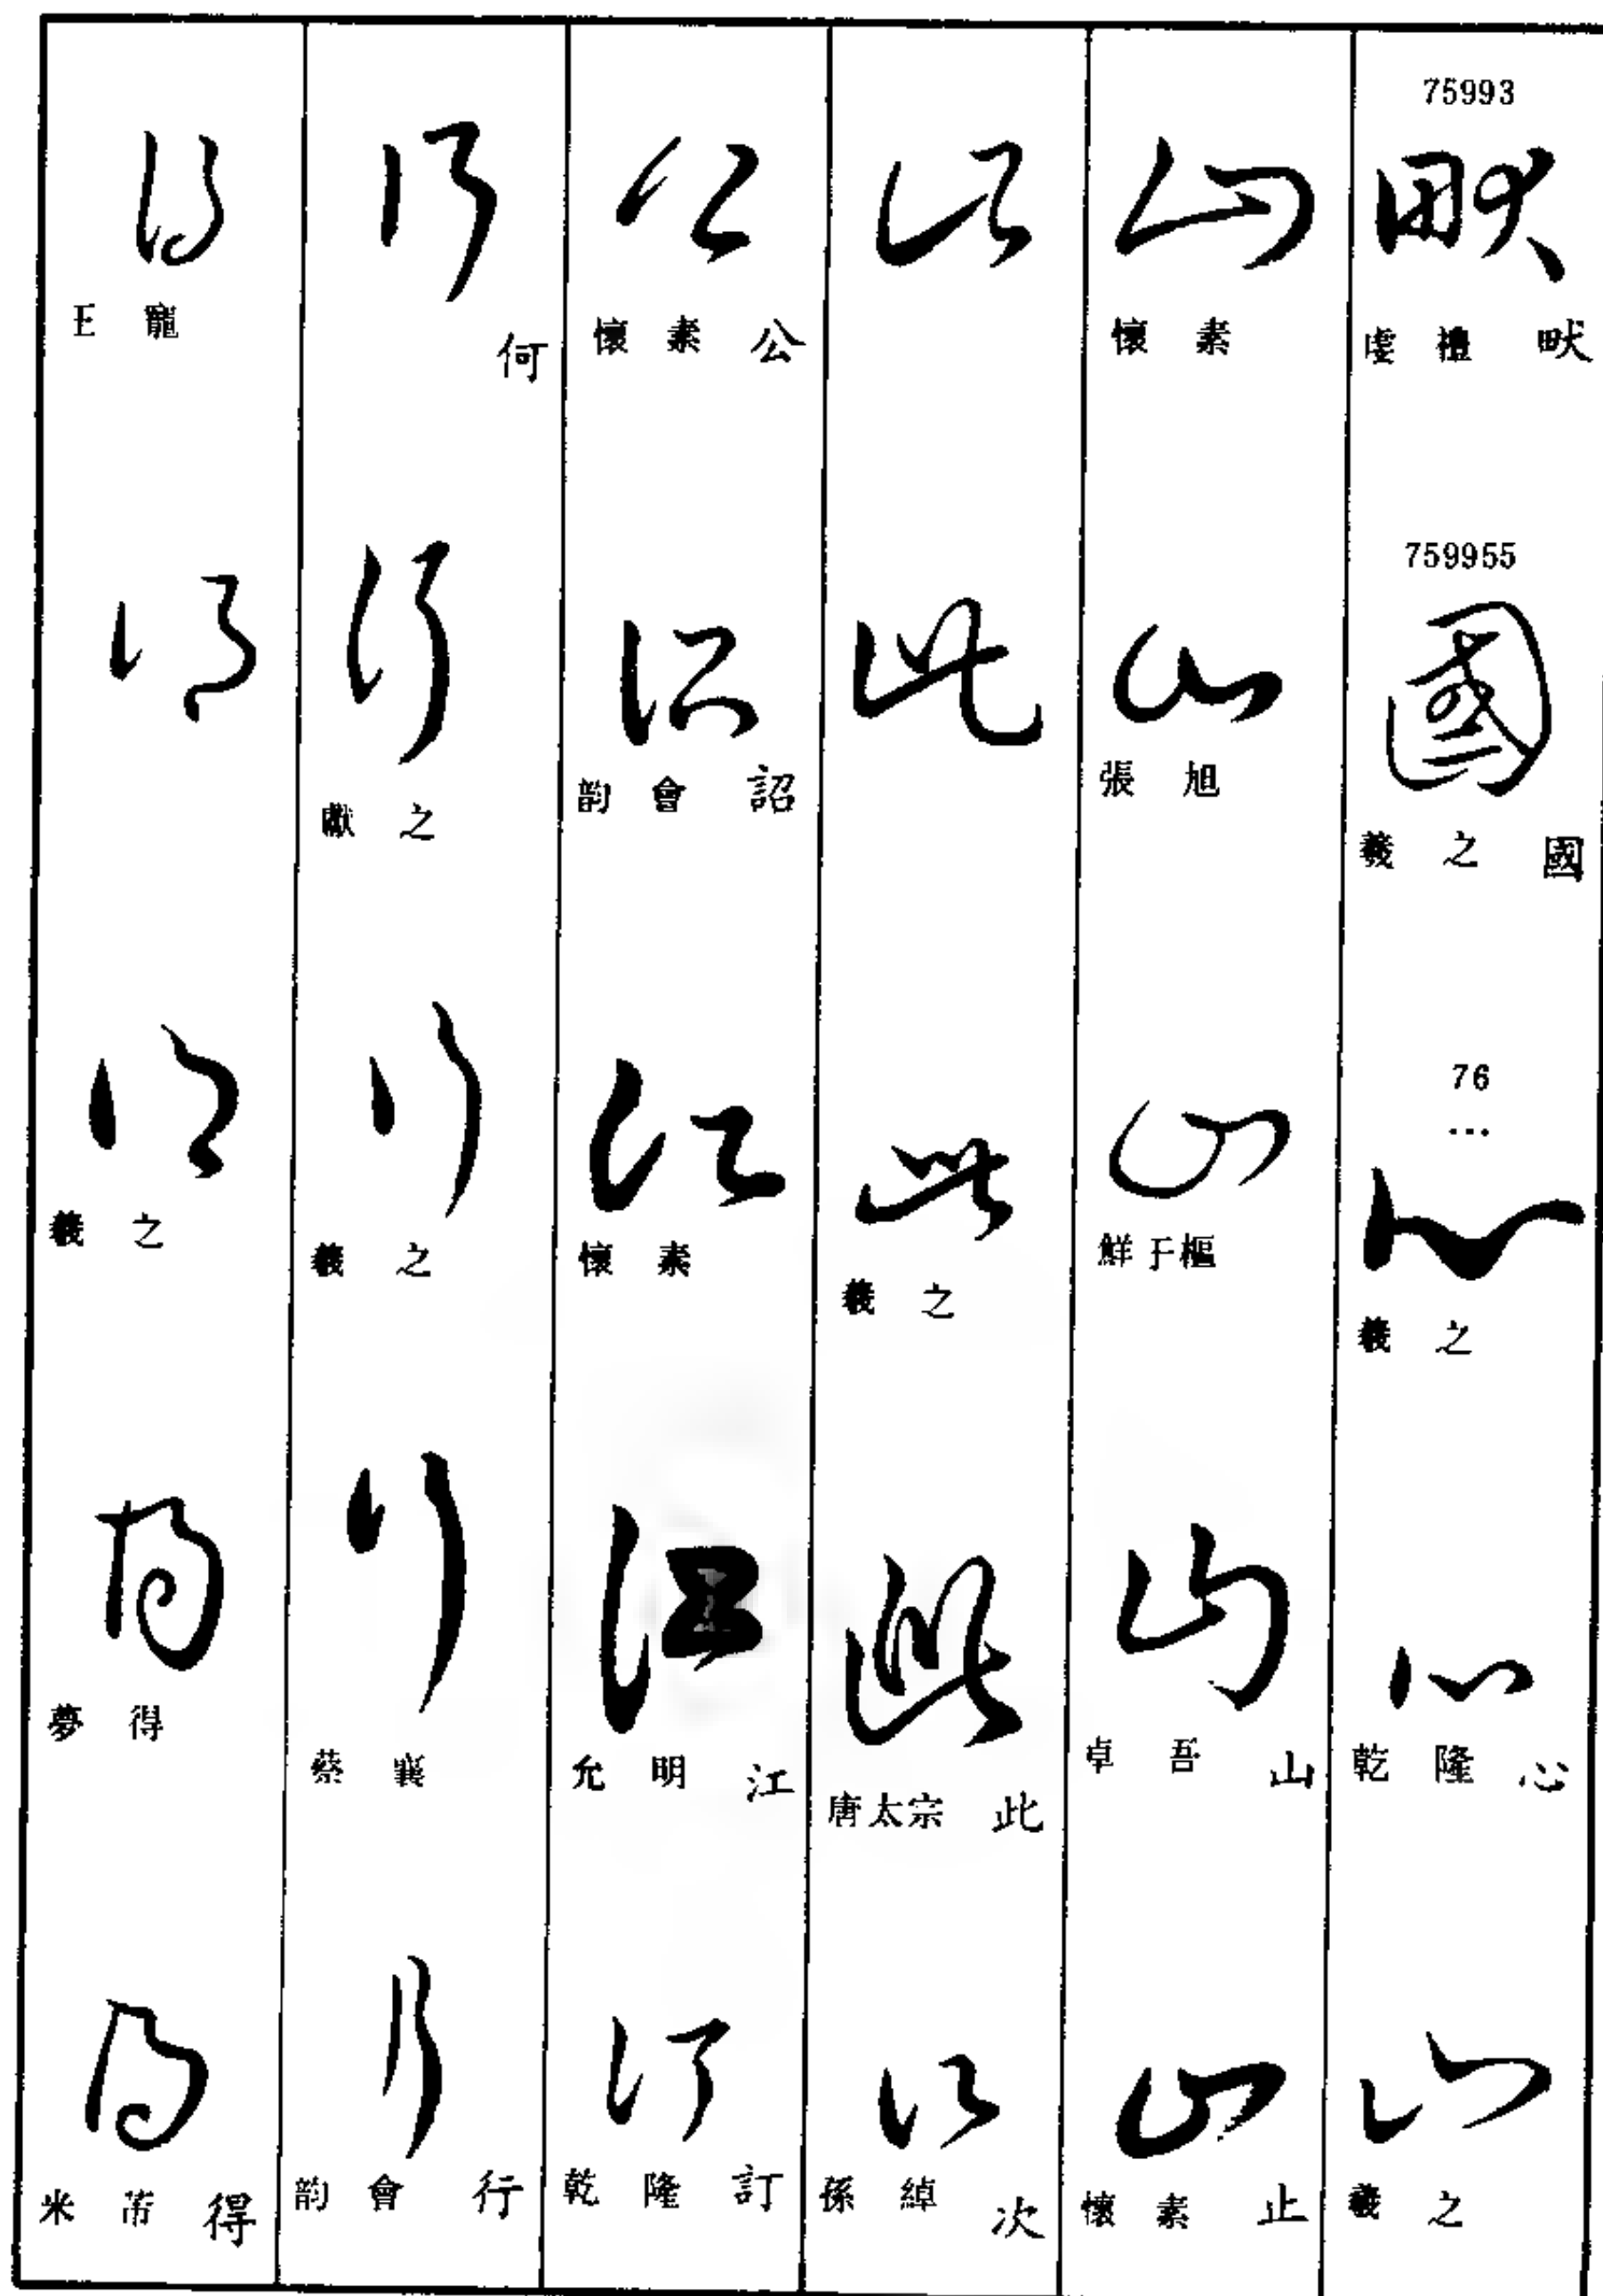 75993
虔禮 畎
759955
羲之 國
76
...
羲之
乾隆 心
羲之
懷素
張旭
鮮于樞
卓吾 山
懷素 止
羲之
唐太宗 此
孫綽 次
懷素 公
韵會 詔
懷素
允明 江
乾隆 訂
何
獻之
羲之
蔡襄
韵會 行
王寵
羲之
夢得
米芾 得